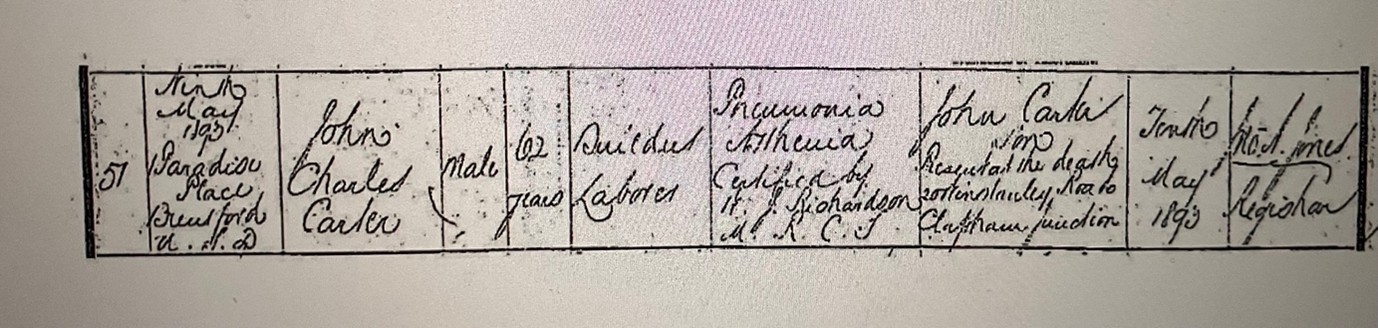 51
Ninth
May
1893
Paradise
Place
Brentford
U. S. D
John
Charles
Carter
Male
62
years
Builders
Laborer
Pneumonia
Asthenia
Certified by
J. Richardson
M. R. C. S
John Carter
Son
Resident at the death
Road
Clapham junction
Tenth
May
1893
Jones
Registrar